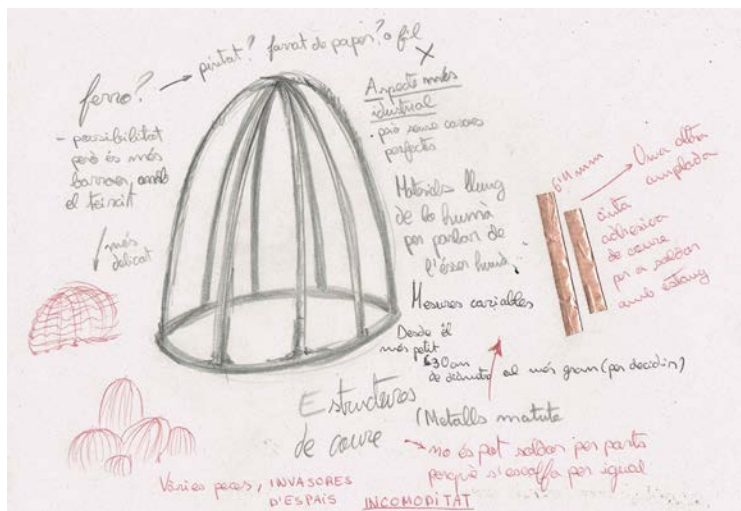 ferro? → pintat? forrat de paper? o fil
- possibilitat
però és més
barroer, amb
el teixit
més
delicat
Aspecte més
idustrial
però sense
perfectes
Materials lluny
de lo humà
per parlar de
l'ésser humà
Mesures variables
Desde el
més petit
30 cm
de diàmetre al més gran (per decidir)
6'4 mm
Una altra
amplada
cinta
adhesiva
de coure
per a soldar
amb estany
Estructures
de coure
(Metalls matute
no és pot soldar per parts
perquè s'escalfa per igual
Vàries peces, INVASORES
D'ESPAIS
INCOMODITAT